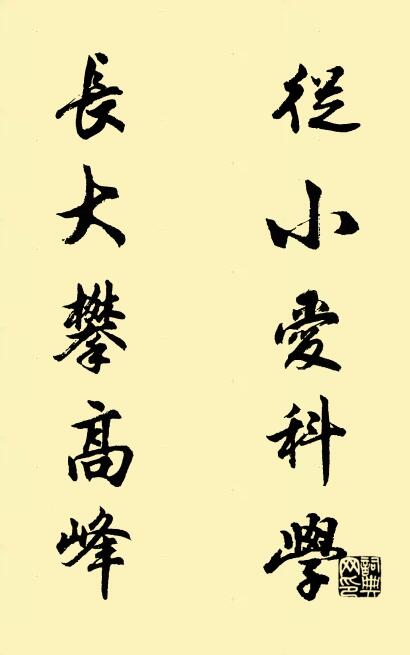 從小愛科學
長大攀高峰
詞典網印